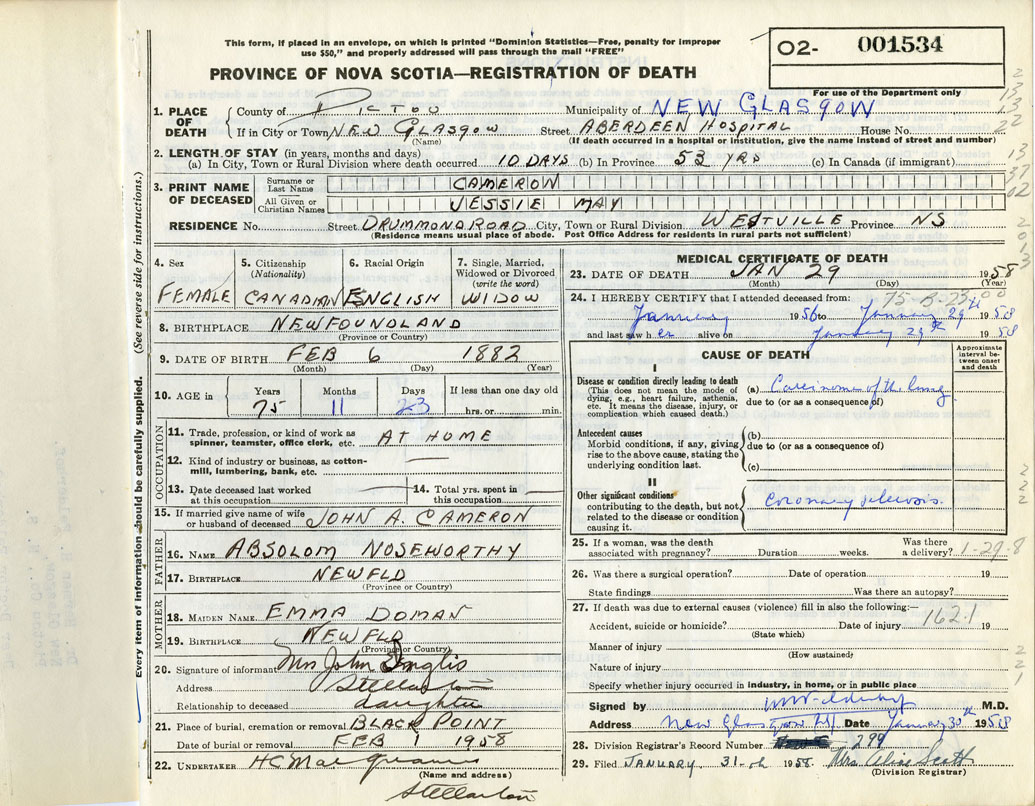 This form, if placed in an envelope, on which is printed "Dominion Statistics—Free, penalty for improper
use $50," and properly addressed will pass through the mail "FREE"
PROVINCE OF NOVA SCOTIA—REGISTRATION OF DEATH
O2- 001534
For use of the Department only
1. PLACE OF DEATH County of PICTOU Municipality of NEW GLASGOW
If in City or Town NEW GLASGOW Street ABERDEEN HOSPITAL House No.
(Name) (If death occurred in a hospital or institution, give the name instead of street and number)
2. LENGTH OF STAY (in years, months and days)
(a) In City, Town or Rural Division where death occurred 10 DAYS (b) In Province 53 YRS (c) In Canada (if immigrant)
3. PRINT NAME OF DECEASED Surname or Last Name CAMERON
All Given or Christian Names JESSIE MAY
RESIDENCE No. Street DRUMMOND ROAD City, Town or Rural Division WESTVILLE Province NS
(Residence means usual place of abode. Post Office Address for residents in rural parts not sufficient)
(See reverse side for instructions.)
Every item of information should be carefully supplied.
4. Sex FEMALE
5. Citizenship (Nationality) CANADIAN
6. Racial Origin ENGLISH
7. Single, Married, Widowed or Divorced (write the word) WIDOW
8. BIRTHPLACE NEWFOUNDLAND
(Province or Country)
9. DATE OF BIRTH FEB 6 1882
(Month) (Day) (Year)
10. AGE in Years 75 Months 11 Days 23 If less than one day old hrs. or min.
OCCUPATION
11. Trade, profession, or kind of work as spinner, teamster, office clerk, etc. AT HOME
12. Kind of industry or business, as cotton-mill, lumbering, bank, etc.
13. Date deceased last worked at this occupation
14. Total yrs. spent in this occupation
15. If married give name of wife or husband of deceased JOHN A. CAMERON
FATHER
16. NAME ABSOLOM NOSEWORTHY
17. BIRTHPLACE NEWFLD
(Province or Country)
MOTHER
18. MAIDEN NAME EMMA DOMAN
19. BIRTHPLACE NEWFLD
(Province or Country)
20. Signature of informant Mrs John Inglis
Address Stellarton
Relationship to deceased daughter
21. Place of burial, cremation or removal BLACK POINT
Date of burial or removal FEB 1 1958
22. UNDERTAKER H C
(Name and address)
Stellarton
MEDICAL CERTIFICATE OF DEATH
23. DATE OF DEATH JAN 29 1958
(Month) (Day) (Year)
75-B-23-00
24. I HEREBY CERTIFY that I attended deceased from:
January 1956 to January 29th 1958
and last saw her alive on January 29th 1958
CAUSE OF DEATH
Approximate interval between onset and death
I
Disease or condition directly leading to death
(This does not mean the mode of dying, e.g., heart failure, asthenia, etc. It means the disease, injury, or complication which caused death.)
(a) Carcinoma of the lung
due to (or as a consequence of)
Antecedent causes
Morbid conditions, if any, giving rise to the above cause, stating the underlying condition last.
(b)
due to (or as a consequence of)
(c)
II
Other significant conditions contributing to the death, but not related to the disease or condition causing it.
Coronary sclerosis.
25. If a woman, was the death associated with pregnancy? Duration weeks. Was there a delivery? 1-29-8
26. Was there a surgical operation? Date of operation 19
State findings Was there an autopsy?
27. If death was due to external causes (violence) fill in also the following:—
Accident, suicide or homicide? Date of injury 19
162.1
(State which)
Manner of injury
(How sustained)
Nature of injury
Specify whether injury occurred in industry, in home, or in public place
Signed by M.D.
Address New Glasgow NS Date January 30th 1958
28. Division Registrar's Record Number 299
29. Filed JANUARY 31 1958 Mrs Alice Scott
(Division Registrar)